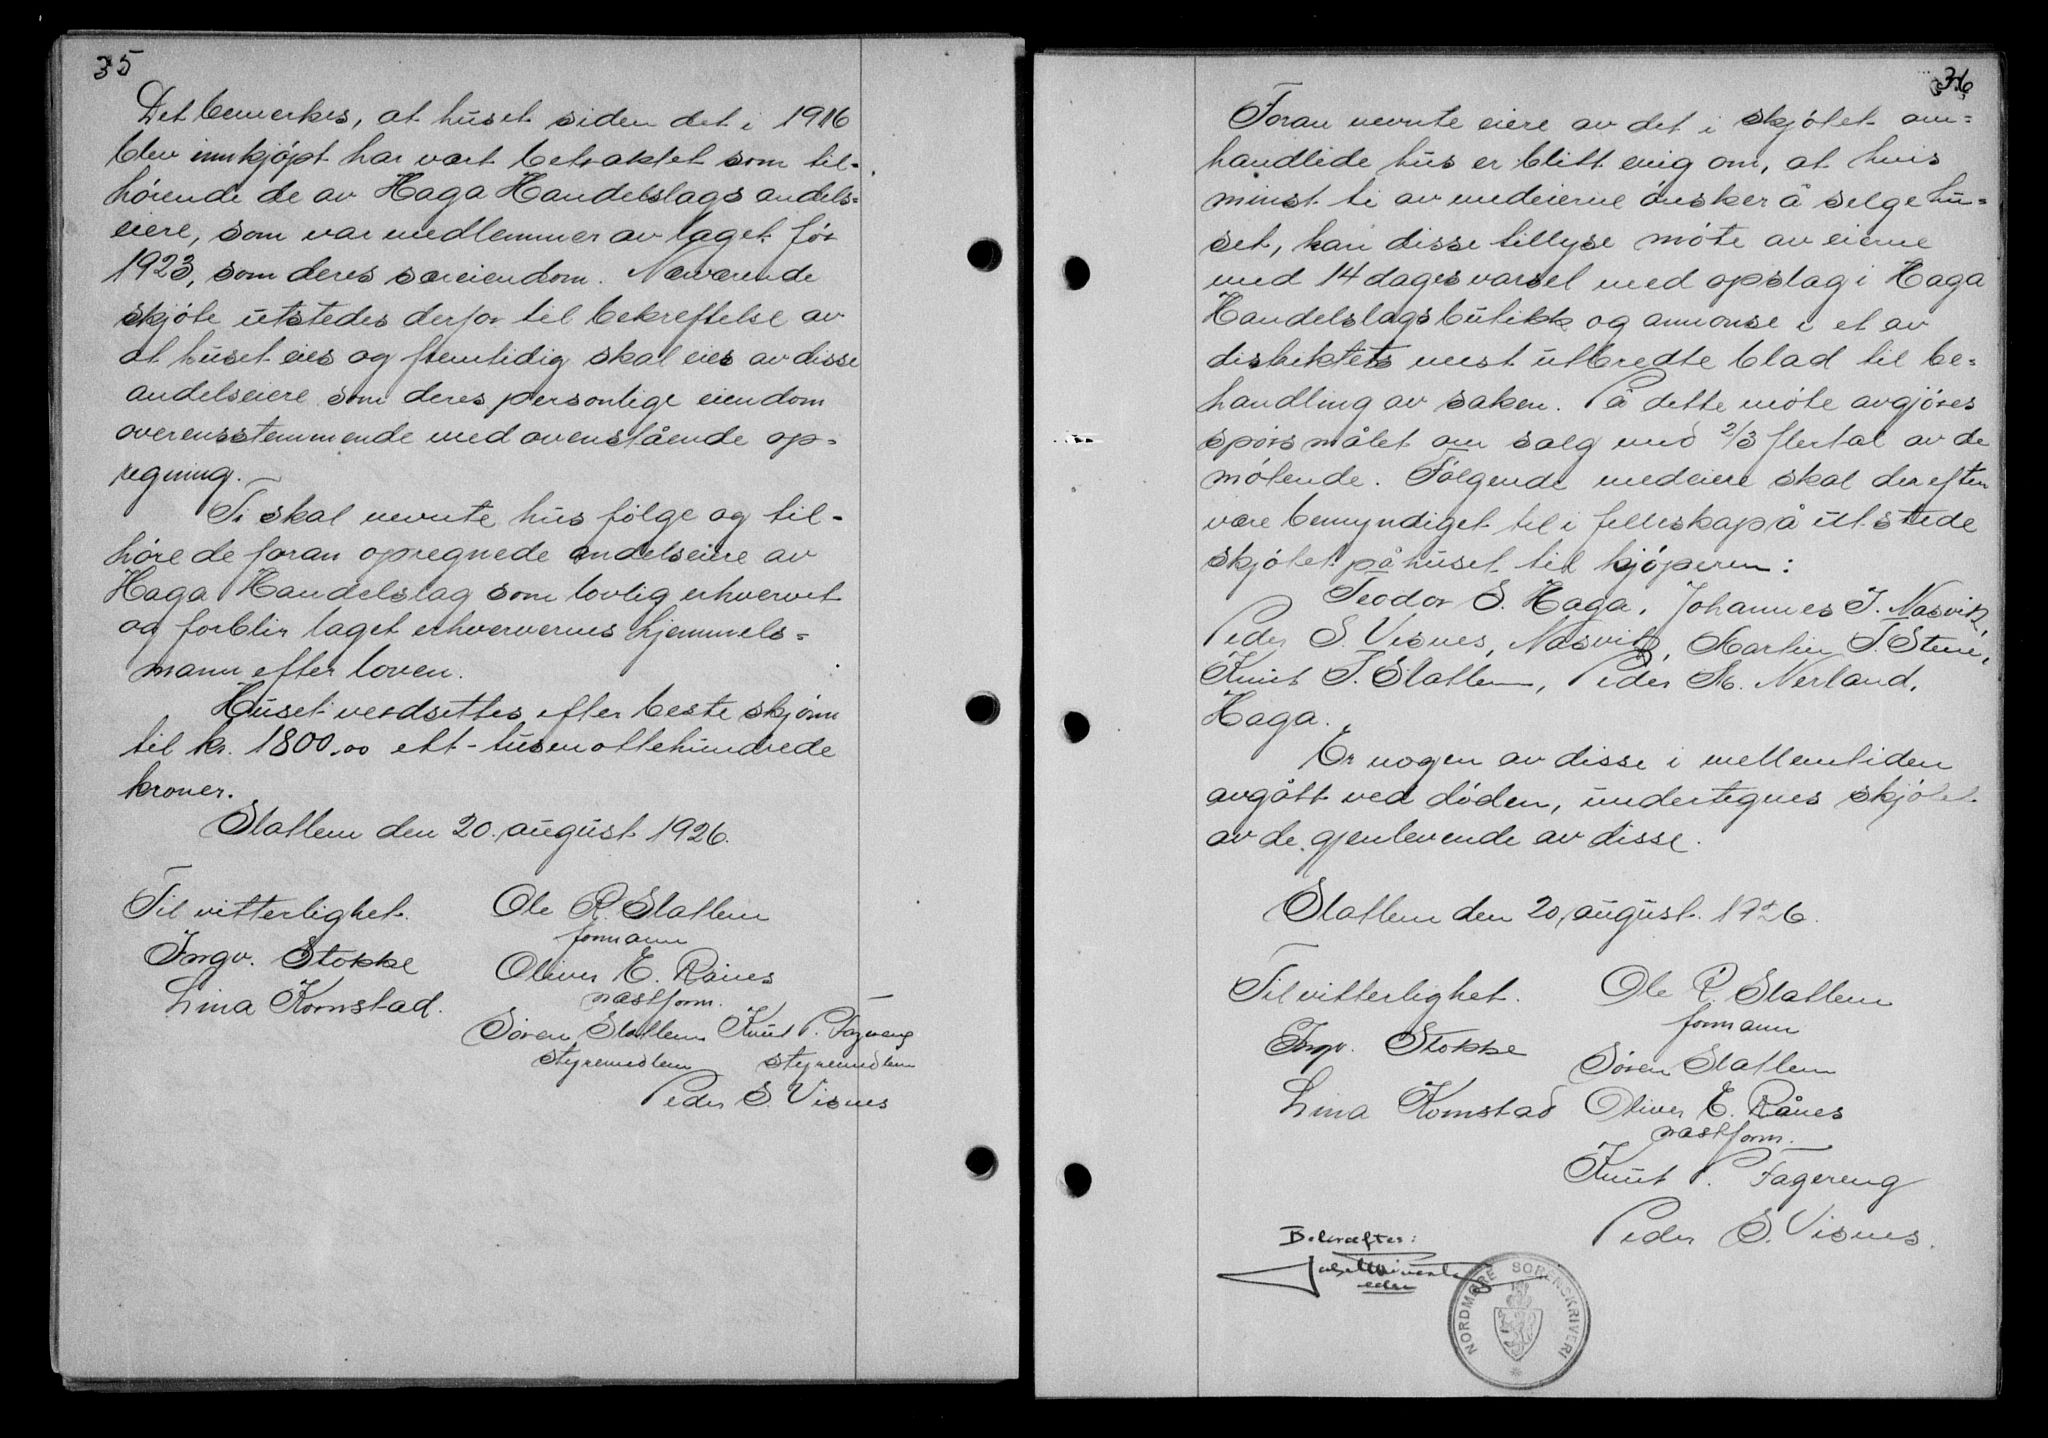 35
Det bemerkes, at huset siden det i 1916
blev innkjøpt har vært betraktet som til-
hørende de av Haga Handelslags andels-
eiere, som var medlemmer av laget før
1923, som deres særeiendom. Nærværende
skjøte utstedes derfor til bekreftelse av
at huset eies og fremtidig skal eies av disse
andelseiere som deres personlige eiendom
overensstemmende med ovenstående op-
regning.
Ti skal nevnte hus følge og til-
høre de foran opregnede andelseiere av
Haga Handelslag som lovlig erhvervet
og forblir laget erhververnes hjemmels-
mann efter loven.
Huset verdsettes efter beste skjønn
til kr. 1800.00 ett-tusenottehundrede
kroner.
Statlem den 20. august 1926.
Til vitterlighet. Ole P. Statlem
formann
Ingv. Stokke Oliver E. Rånes
næstform.
Lina Kornstad.
Søren Statlem Knut P. Fagereng
styremedlem styremedlem
Peder S. Visnes
36
Foran nevnte eiere av det i skjøtet om-
handlede hus er blitt enig om, at hvis
minst ti av medeierne ønsker å selge hu-
set, kan disse tillyse møte av eierne
med 14 dages varsel med opslag i Haga
Handelslags butikk og annonse i et av
distriktets mest utbredte blad til be-
handling av saken. På dette møte avgjøres
spørsmålet om salg med 2/3 flertal av de
møtende. Følgende medeiere skal derefter
være bemyndiget til i felleskap å utstede
skjøtet på huset til kjøperen:
Teodor S. Haga, Johannes J. Nasvik,
Peder S. Visnes, Nasvik, Martin S. Stene,
Knut J. Statlem, Peder M. Nerland,
Haga.
Er nogen av disse i mellemtiden
avgått ved døden, undertegnes skjøtet
av de gjenlevende av disse.
Statlem den 20, august. 1926.
Til vitterlighet. Ole P. Statlem
formann
Ingv. Stokke Søren Statlem
Lina Kornstad Oliver E. Rånes
næstform.
Knut P. Fagereng
Peder S. Visnes.
Bekræftes:
NORDMØRE SORENSKRIVERI